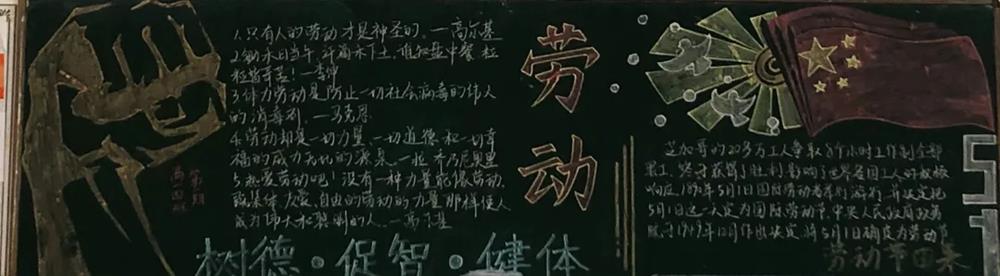 1.只有人的劳动才是神圣的。—高尔基
2.锄禾日当午,汗滴禾下土,谁知盘中餐 粒
粒皆辛苦!—李绅
3.体力劳动是防止一切社会病毒的伟人
的消毒剂。—马克思
4.劳动却是一切力量、一切道德和一切幸
福的威力无比的源泉。—拉·乔乃尼奥里
5.热爱劳动吧!没有一种力量能像劳动,
既集体、友爱、自由的劳动的力量那样使人
成为伟大和聪明的人。—高尔基
第一期
高一四班
劳动
树德·促智·健体
芝加哥的20多万工人争取8个小时工作制全部
罢工,终于获得了胜利影响了世界各国工人的积极
响应。1890年5月1日国际劳动者举行游行,并决定把
5月1日这一天定为国际劳动节。中央人民政府政务
院于1949年12月作出决定,将5月1日确定为劳动节
劳动节由来
51